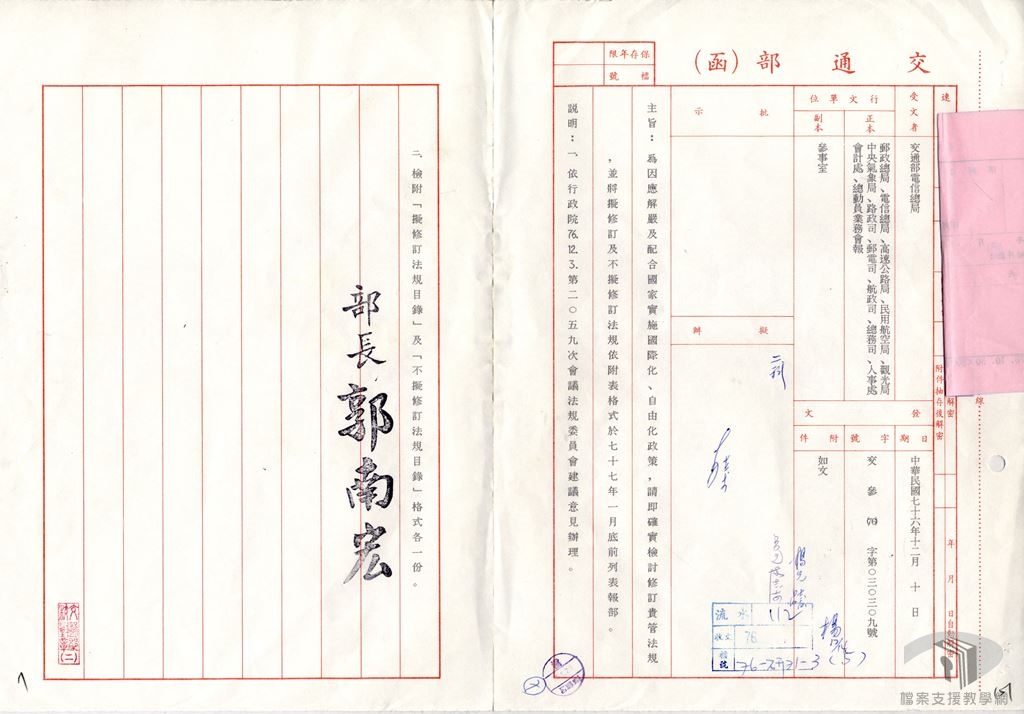 交通部（函）
保存年限
檔號
速
受文者
交通部電信總局
行文單位
正本
郵政總局、電信總局、高速公路局、民用航空局、觀光局
中央氣象局、路政司、郵電司、航政司、總務司、人事處
會計處、總動員業務會報
副本
參事室
批示
擬辦
發文
日期
中華民國七十六年十二月十日
字號
交參
字第〇三〇三〇九號
附件
如文
附件抽存後解密
年月日自動解密
線
主旨：為因應解嚴及配合國家實施國際化、自由化政策，請即確實檢討修訂貴管法規
，並將擬修訂及不擬修訂法規依附表格式於七十七年一月底前列表報部。
說明：一、依行政院76.12.3.第二〇五九次會議法規委員會建議意見辦理。
二、檢附「擬修訂法規目錄」及「不擬修訂法規目錄」格式各一份。
部長 郭南宏
流水 112
收文 76
檔號
檔案支援教學網